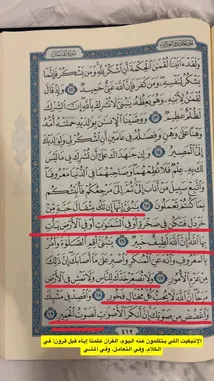 سورة لقمان
ولقد ءاتينا لقمن الحكمة أن اشكر لله ومن يشكر فإنما
يشكر لنفسه ومن كفر فإن الله غني حميد ١٢ وإذ قال
لقمن لابنه وهو يعظه يبني لا تشرك بالله إن الشرك
لظلم عظيم ١٣ ووصينا الإنسن بولديه حملته أمه
وهنا على وهن وفصله في عامين أن اشكر لي ولولديك
إلي المصير ١٤ وإن جهداك على أن تشرك بي ما ليس
لك به علم فلا تطعهما وصاحبهما في الدنيا معروفا
واتبع سبيل من أناب إلي ثم إلي مرجعكم فأنبئكم
بما كنتم تعملون ١٥ يبني إنها إن تك مثقال حبة من
خردل فتكن في صخرة أو في السموت أو في الأرض يأت
بها الله إن الله لطيف خبير ١٦ يبني أقم الصلوة وأمر
بالمعروف وانه عن المنكر واصبر على ما أصابك إن ذلك
من عزم الأمور ١٧ ولا تصعر خدك للناس ولا تمش في الأرض
مرحا إن الله لا يحب كل مختال فخور ١٨ واقصد في مشيك
واغضض من صوتك إن أنكر الأصوت لصوت الحمير ١٩
٤١٢
الإتيكيت اللي بيتكلمون عنه اليوم، القرآن علمنا إياه قبل قرون: في
الكلام، وفي التعامل، وفي المشي